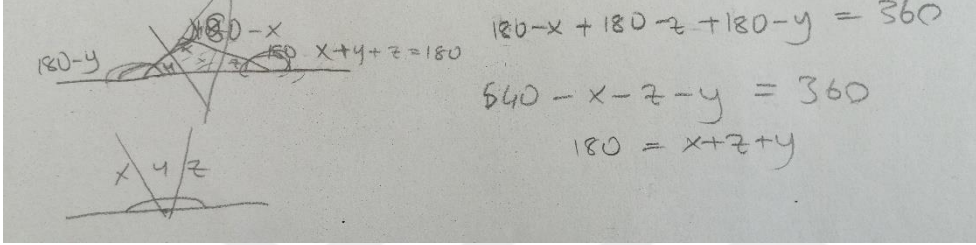 180-x
180-y x y z 180 x+y+z=180
x y z
180-x + 180-z +180-y = 360
540 - x - z - y = 360
180 = x+z+y